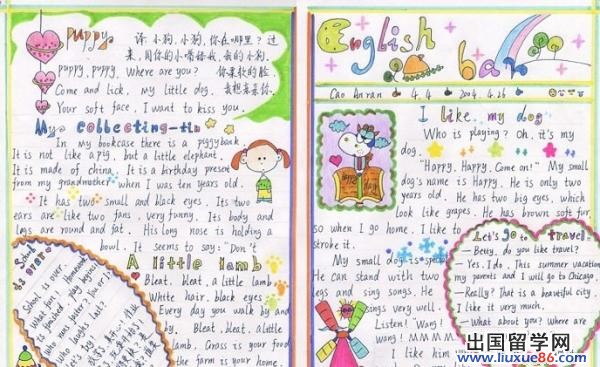 Puppy
译:小狗,小狗,你在哪里?过
来,用你的小嘴舔我,我的小狗,
puppy, puppy, Where are you? 你柔软的脸,
Come and lick, my little dog, 我想亲亲你.
Your soft face, I want to kiss you.
My collecting-tin
In my bookcase there is a piggyback
It is not like a pig, but a little elephant.
It is made of china. It is a birthday present
from my grandmother when I was ten years old.
It has two small and black eyes. Its two
ears are like two fans, very funny. Its body and
legs are round and fat. His long nose is holding a
bowl. It seems to say: "Don't
School is over
School is over.
What fun!
Homework
is finished,
Who runs
Who laughs last?
Let's try
A little lamb
Bleat, bleat, a little lamb
White hair, black eyes.
Every day you walk by and
by. Bleat, bleat, a little
lamb. Grass is your food
the farm is your home.
English bar
Cao Anran 4.4 2004.4.26
I like my dog
Who is playing? Oh, it's my
dog.
"Happy, Happy. Come on!" My small
dog's name is Happy. He is only two
years old. He has two big eyes, which
look like grapes. He has brown soft fur,
so when I go home, I like to
stroke it.
My small dog is special
He can stand with two
legs and sing songs. He
sings very well.
Listen! "Wang!
Wang!
I like him
Let's go to travel.
— Betty, do you like travel?
— Yes, I do. This summer vacation
my parents and I will go to Chicago.
— Really? That is a beautiful city.
I like it very much.
— What about you? Where are
出国留学网
www.liuxue86.com